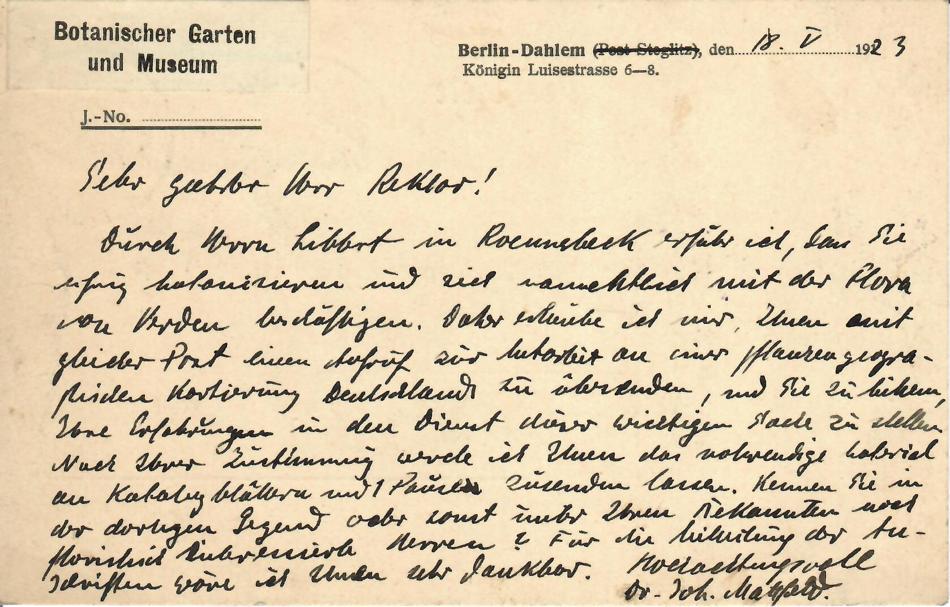 Botanischer Garten
und Museum
Berlin-Dahlem (Post Steglitz), den 18. V 1923
Königin Luisestrasse 6—8.
J.-No.
Sehr geehrter Herr Rektor!
Durch Herrn Libbert in Roennebeck erfuhr ich, dass Sie
eifrig botanisieren und sich namentlich mit der Flora
von Verden beschäftigen. Daher erlaube ich mir, Ihnen mit
gleicher Post einen Aufruf zur Mitarbeit an einer pflanzengeogra-
phischen Kartierung Deutschlands zu übersenden, und Sie zu bitten,
Ihre Erfahrungen in den Dienst dieser wichtigen Sache zu stellen.
Nach Ihrer Zustimmung werde ich Ihnen das notwendige Material
an Katalogblättern und 1 Pausen zusenden lassen. Kennen Sie in
der dortigen Gegend oder sonst unter Ihren Bekannten noch
floristisch interessierte Herren? Für die Mitteilung der An-
schriften wäre ich Ihnen sehr dankbar. Hochachtungsvoll
Dr. Joh. Mattfeld.